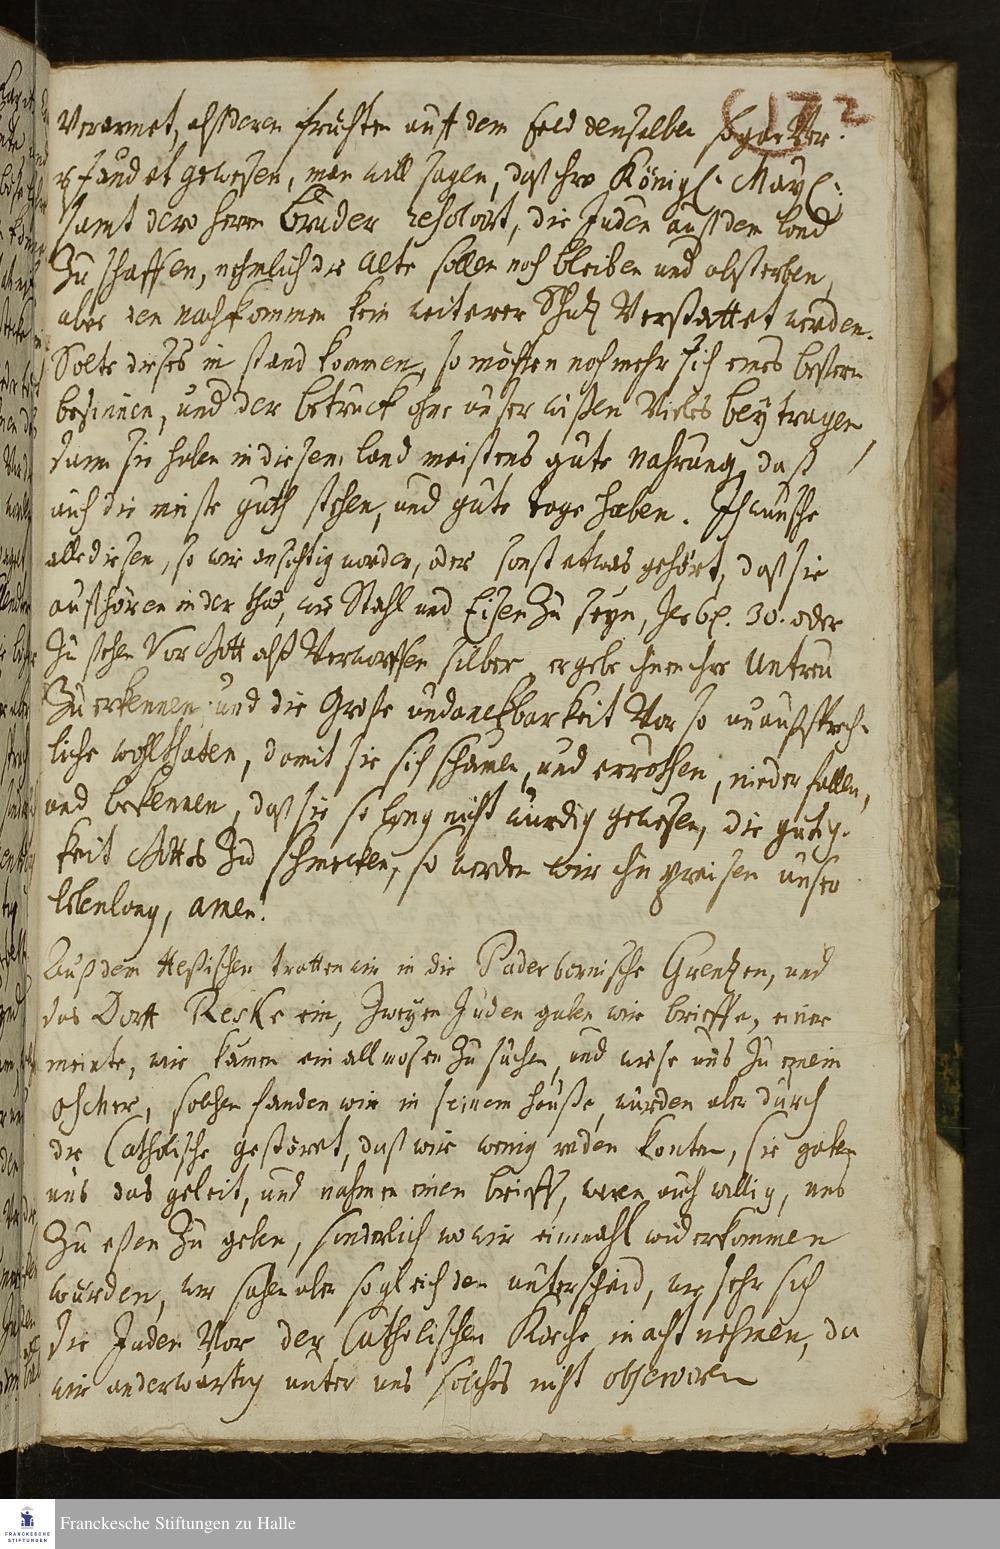 172
Verarmet, alß deren Früchten auff dem Feld denselben sogar Ver-
pfändet gewesen, man will sagen, daß ihro Königl. Mayl.
samt dero Herrn Bruder resolvirt, die Juden auß dem Land
Zu schaffen, nehmlich die Alte sollen noch bleiben und absterben,
aber den nachkommen kein weiterer Schutz Verstattet werden.
Solte dieses in stand kommen, so möchten noch mehr sich eines bestern
besinnen, und der betruck ohne unser wißen Vieles beytragen
dann sie haben in diesem Land meistens gute nahrung, daß
auch die meiste guth stehen, und gute tage haben. Ich wünsche
alle diesen, so wir ansichtig worden, oder sonst etwas gehört, daß sie
aufhören in der that, wie Stahl und Eisen Zu seyn, Jer 6. 30. oder
Zu stehen Vor Gott alß Verworffen silber, er gebe ihnen ihre Untreu
Zu erkennen, und die Große undanckbarkeit Vor so unaußsprech-
liche wohlthaten, damit sie sich schämen, und erröthen, nieder fallen,
und bekennen, daß sie so lang nicht würdig gewesen, die gütig-
keit Gottes Zu schmecken, so werden wir ihn preisen unser
lebenlang, amen.
Auß dem Heßischen tratten wir in die Paderbornische Grentzen, und
das Dorff Reske ein, Zweyen Juden gaben wir brieffe, einer
meinte, wir kämen ein allmosen Zu suchen, und wiese uns Zu einem
oscher, solchen fanden wir in seinem hauße, wurden aber durch
die Catholische gestöret, daß wir wenig reden konten, sie gaben
uns das geleit, und nahmen einen brieff, waren auch willig, uns
Zu eßen Zu geben, sinderlich wo wir einmahl widerkommen
würden, wir sahen aber sogleich den unterscheid, wie sehr sich
die Juden Vor der Catholischen Kirche in acht nehmen, da
wir anderwärtig unter uns solches nicht observiren
Franckesche Stiftungen zu Halle
FRANCKESCHE
STIFTUNGEN